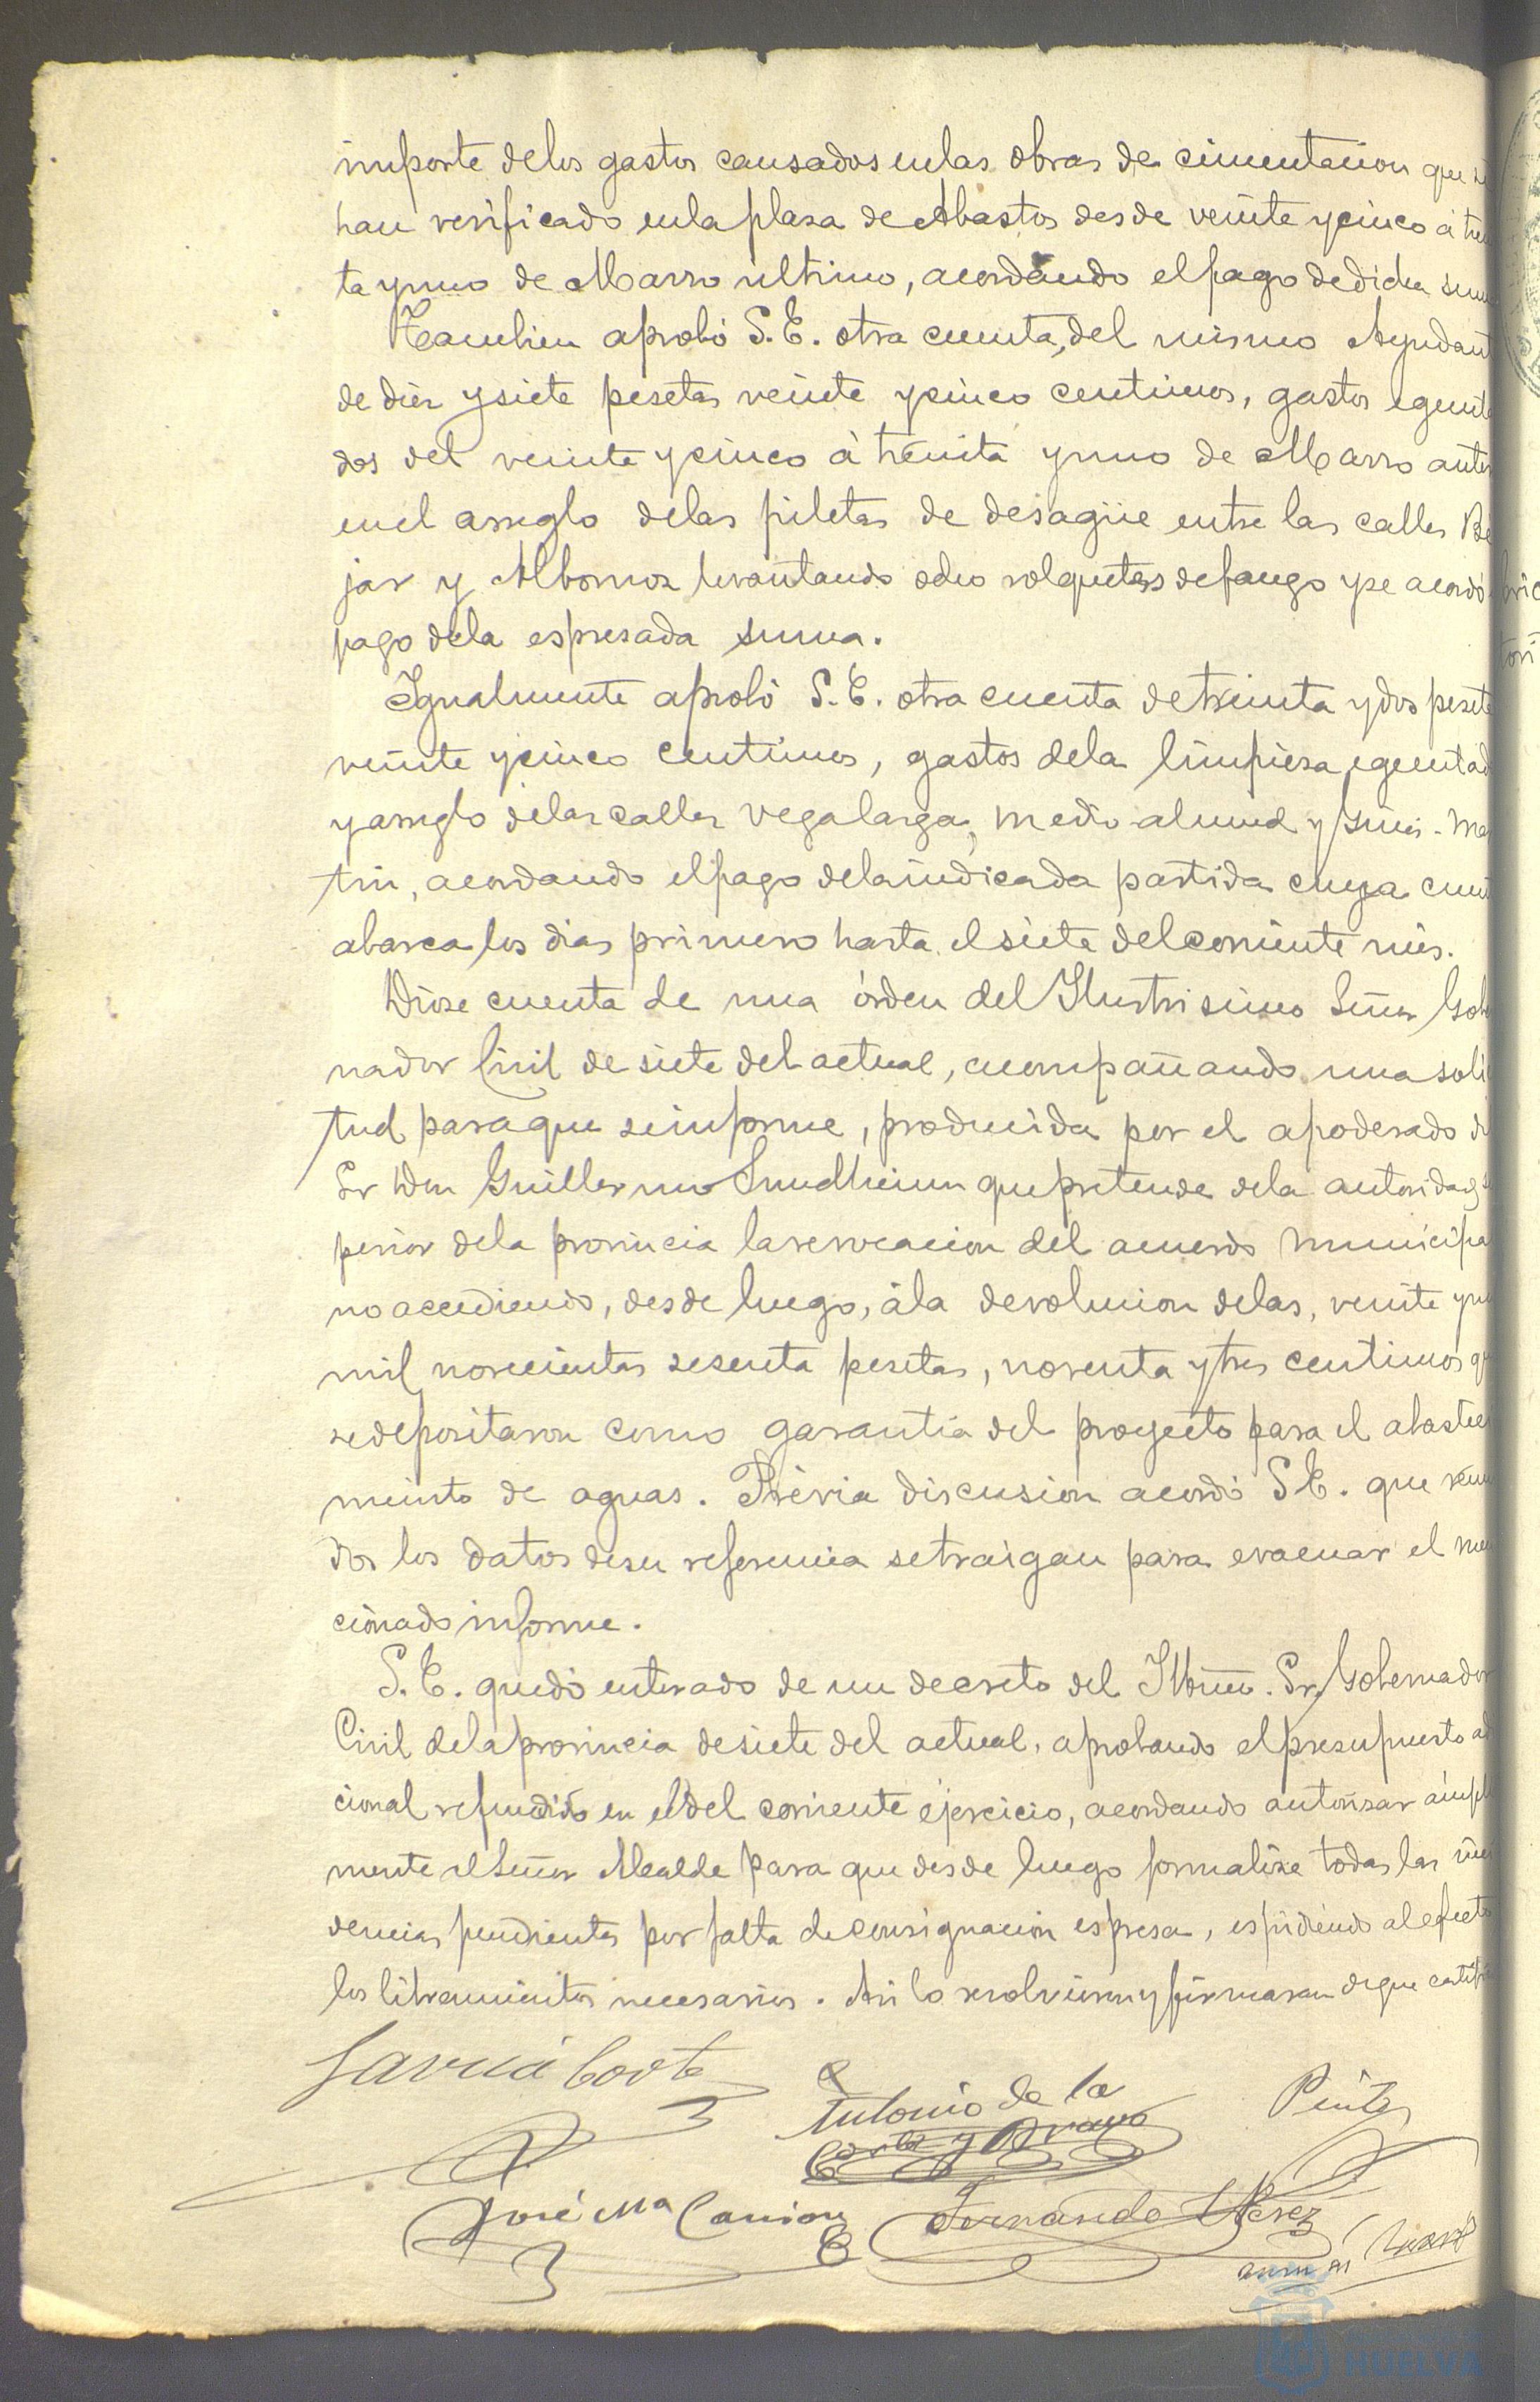 importe delos gastos causados enlas obras de cimentacion que se
han verificado enla plasa de Abastos desde veinte y cinco á trein
ta y uno de Marzo ultimo, acordando el pago dedicha suma
Tambien aprobó S. E. otra cuenta, del mismo Ayudant
de diez y siete pesetas veinte y cinco centimos, gastos egecuta
dos del veinte y cinco á treinta y uno de Marzo anter
enel arreglo delas piletas de desagüe entre las calles Be
jar y Albornoz levantando ocho volquetes defango y se acordó
pago dela espresada suma.
Igualmente aprobó S. E. otra cuenta detreinta y dos peseta
veinte y cinco centimos, gastos dela limpieza egecutad
y arreglo delas calles vegalarga, medio-almud y Gines-Mar
tin, acordando el pago dela indicada partida cuya cuent
abarca los dias primero hasta el siete del corriente mes.
Diose cuenta de una órden del Ilustrisimo Señor Gob
nador Civil de siete del actual, acompañando una soli
tud para que seinforme, producida por el apoderado d
Sr Don Guillermo Sundheim que pretende dela autoridad s
perior dela provincia la revocacion del acuerdo municipa
no accediendo, desde luego, ála devolucion delas, veinte y un
mil novecientas sesenta pesetas, noventa y tres centimos q
se depositaron como garantía del proyecto para el abastec
miento de aguas. Prévia discusion acordó S. E. que reuni
dos los datos desu referencia se traigan para evacuar el men
cionado informe.
S. E. quedó enterado de un decreto del Iltmo. Sr. Gobernador
Civil dela provincia desiete del actual, aprobando el presupuesto ad
cional refundido en el del corriente ejercicio, acordando autorizar ámpl
mente al Señor Alcalde para que desde luego formalize todas las
dencias pendientes por falta de consignacion espresa, espidiendo al efecto
los libramientos necesarios. Asi lo resolvieron y firmaran de que certif
Garcia Corte
Antonio de la
Corte y Bravo
Pinto
José Mª Carrion
Fernando Perez